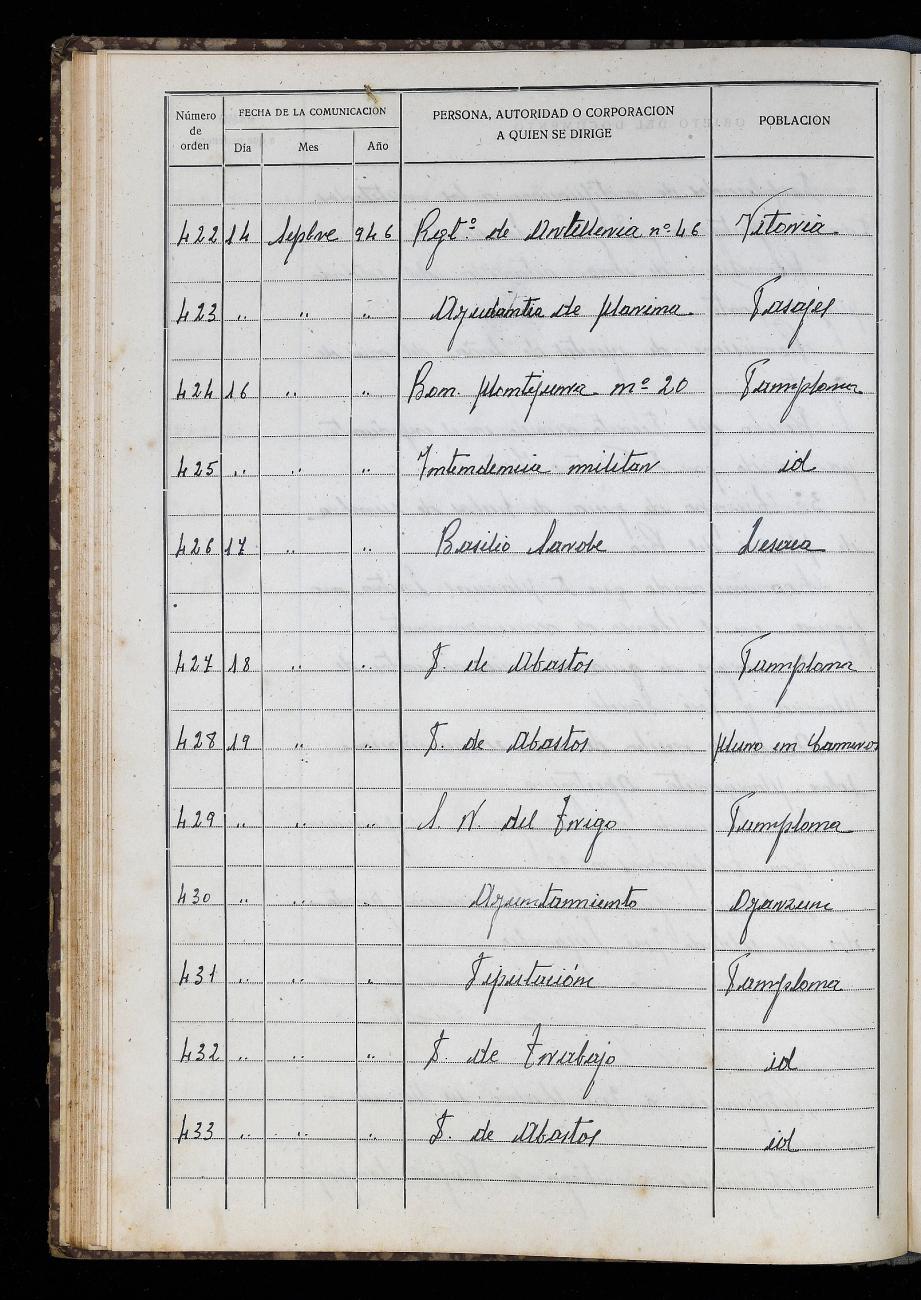 Número de orden
FECHA DE LA COMUNICACIÓN
Día Mes Año
PERSONA, AUTORIDAD O CORPORACION
A QUIEN SE DIRIGE
POBLACION
422 14 Sepbre 946 Rgtº. de Artilleria nº 46 Vitoria
423 " " " Ayudantia de Marina Pasajes
424 16 " " Bon. Montejurra nº 20 Pamplona
425 " " " Intendencia militar id
426 17 " " Basilio Sarobe Lesaca
427 18 " " D. de Abastos Pamplona
428 19 " " D. de Abastos Muro en Cameros
429 " " " S. N. del Trigo Pamplona
430 " " " Ayuntamiento Oyarzun
431 " " " Diputación Pamplona
432 " " " D. de Trabajo id
433 " " " D. de Abastos id